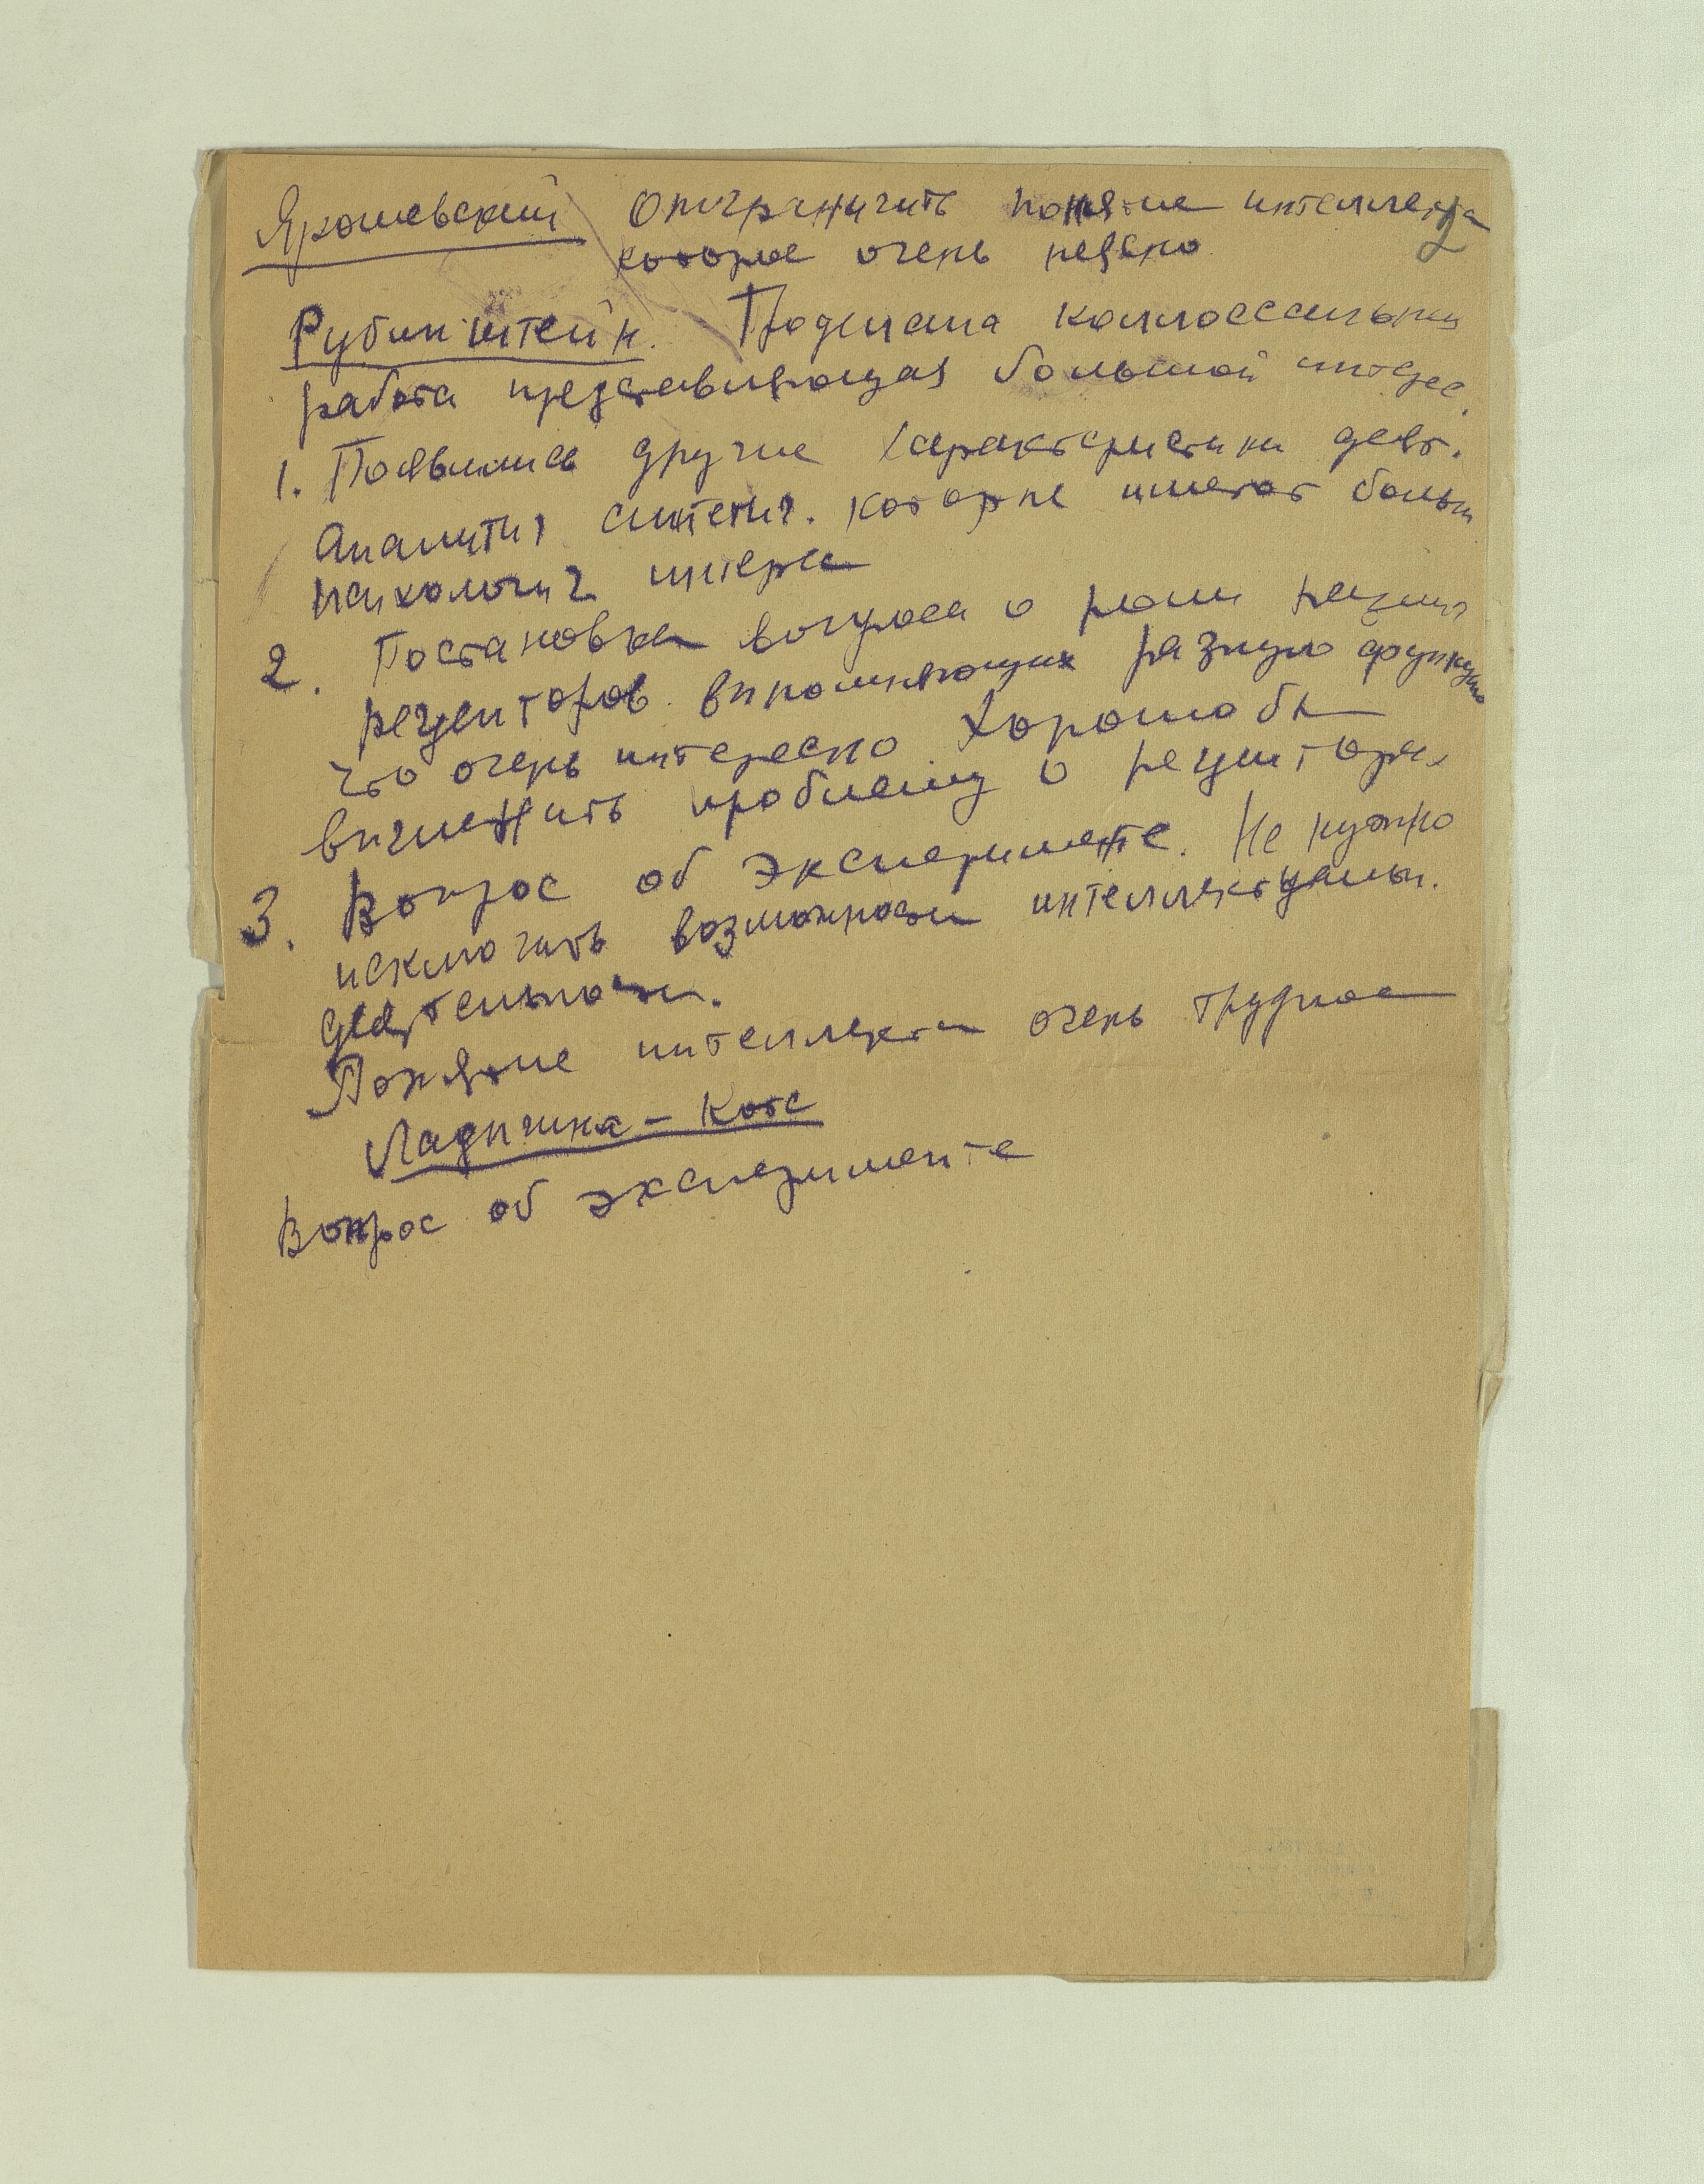 Ярошевский Отграничить понятие интеллекта
2
которое очень неясно
Рубинштейн. Проделана коллоссальная
работа представляющая большой интерес.
1. Появились другие характеристики деят.
Аналитич синтетич. которые имеют больш
психологич интерес
2. Постановка вопроса о роли
рецепторов выполняющих разную функцию
что очень интересно Хорошо бы
вычленить проблему о рецепторах
3. Вопрос об эксперименте. Не нужно
исключить возможности интеллектуальн.
деятельности.
Понятие интеллекта очень трудное
Ладыгина – Котс
Вопрос об эксперименте